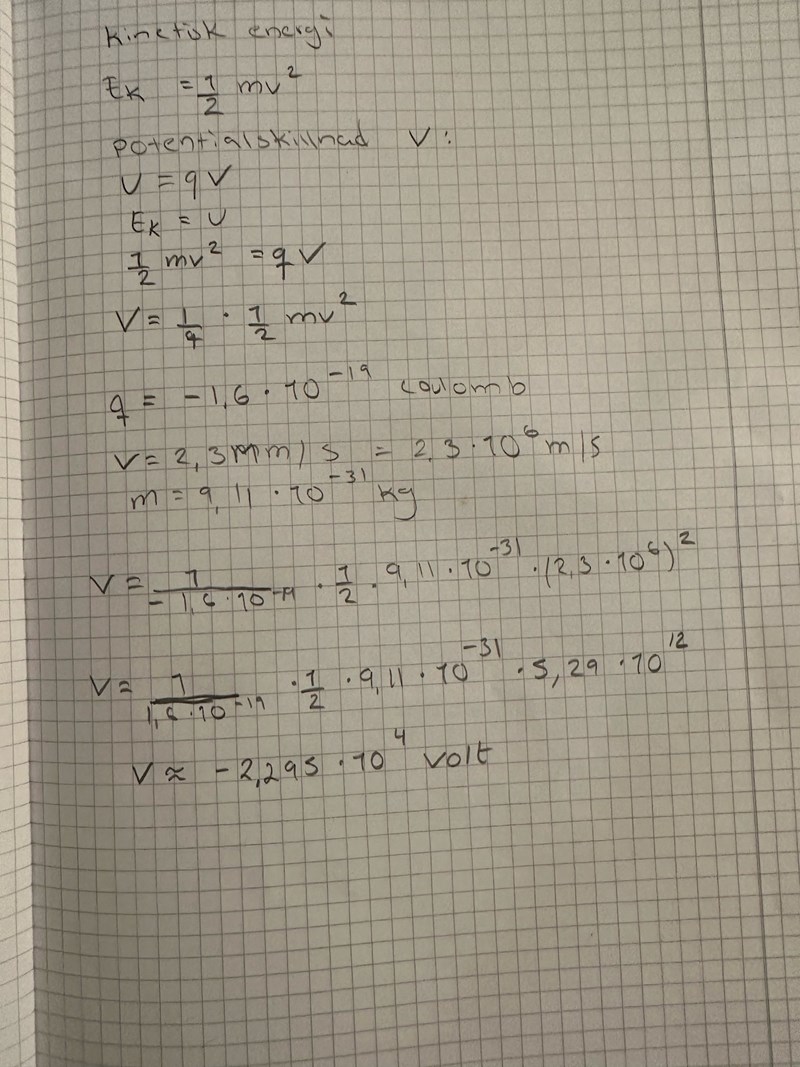 kinetisk energi
Ek = 1/2 mv²
potentialskillnad V:
U = qV
Ek = U
1/2 mv² = qV
V = 1/q · 1/2 mv²
q = -1,6 · 10⁻¹⁹ coulomb
v = 2,3 Mm/s = 2,3 · 10⁶ m/s
m = 9,11 · 10⁻³¹ kg
V = 1/(-1,6 · 10⁻¹⁹) · 1/2 · 9,11 · 10⁻³¹ · (2,3 · 10⁶)²
V = 1/(1,6 · 10⁻¹⁹) · 1/2 · 9,11 · 10⁻³¹ · 5,29 · 10¹²
V ≈ -2,295 · 10⁴ volt